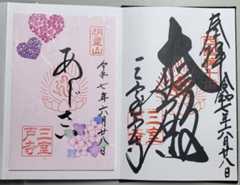 奉拝
令和七年六月廿八日
大悲殿
三室戸寺
明星山
令和七年六月廿八日
あじさい
三室
戸寺